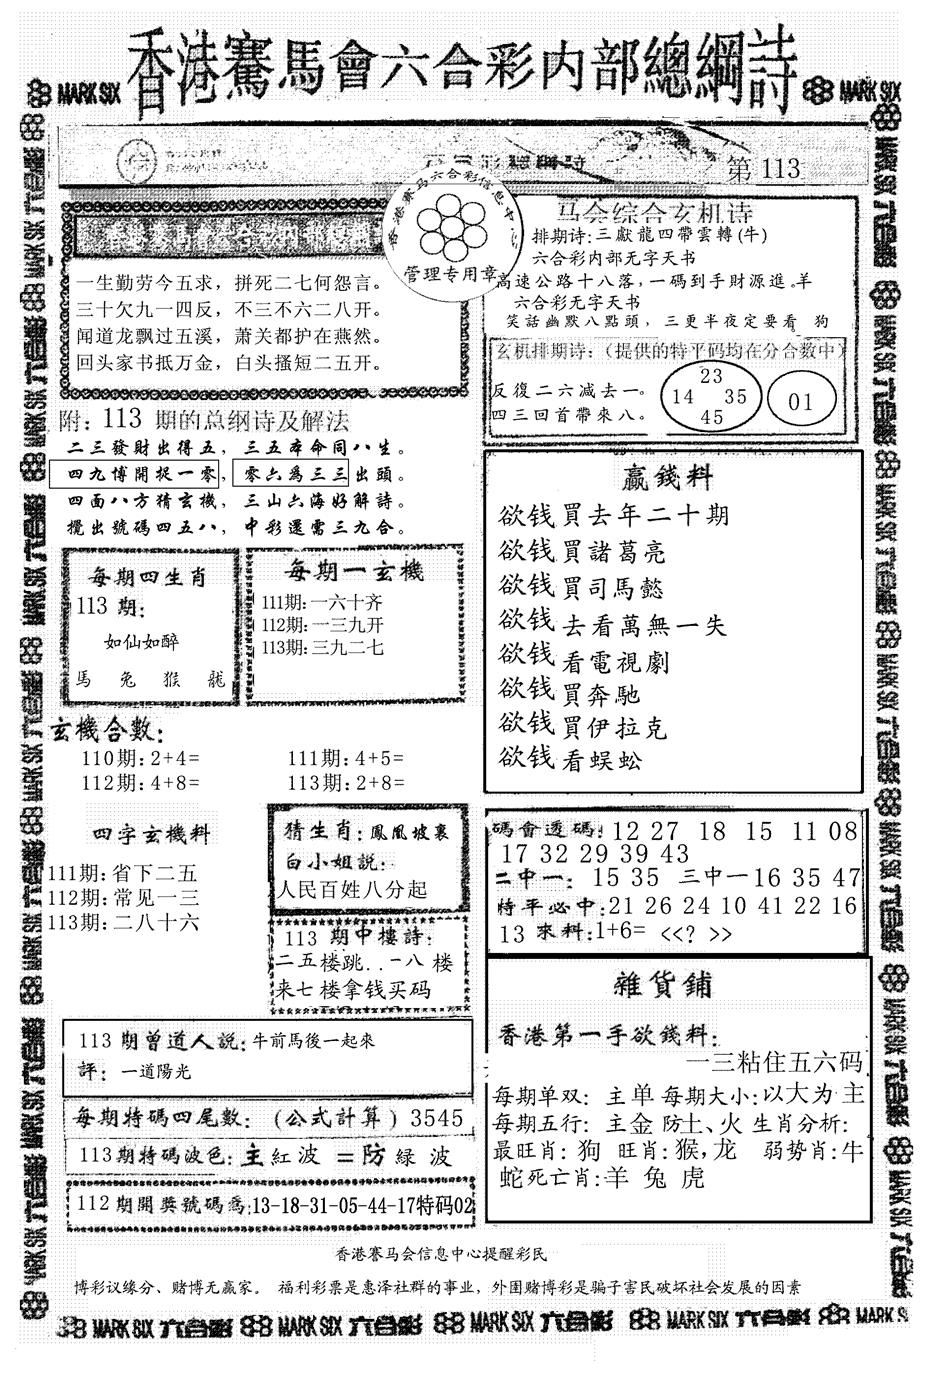 香港賽馬會六合彩内部總綱詩
MARK SIX
MARK SIX
第 113
香港赛马六合彩信息中心
管理专用章
一生勤劳今五求，拼死二七何怨言。
三十欠九一四反，不三不六二八开。
闻道龙飘过五溪，萧关都护在燕然。
回头家书抵万金，白头搔短二五开。
马会综合玄机诗
排期诗:三獻龍四帶雲轉(牛)
六合彩内部无字天书
高速公路十八落，一碼到手財源進。羊
六合彩无字天书
笑話幽默八點頭，三更半夜定要看 狗
玄机排期诗:（提供的特平码均在分合数中）
反復二六减去一。
四三回首帶來八。
23
14 35
45
01
附：113 期的总纲诗及解法
二三發財出得五，三五本命同八生。
四九博開捉一零，零六爲三三出頭。
四面八方猜玄機，三山六海好解詩。
攪出號碼四五八，中彩還需三九合。
每期四生肖
113 期：
如仙如醉
馬 兔 猴 龍
每期一玄機
111期:一六十齐
112期:一三九开
113期:三九二七
赢錢料
欲钱買去年二十期
欲钱買諸葛亮
欲钱買司馬懿
欲钱去看萬無一失
欲钱看電視劇
欲钱買奔馳
欲钱買伊拉克
欲钱看蜈蚣
玄機合數：
110期:2+4= 111期:4+5=
112期:4+8= 113期:2+8=
四字玄機料
111期:省下二五
112期:常见一三
113期:二八十六
猜生肖：鳳凰坡裏
白小姐説：
人民百姓八分起
113 期中樓詩：
二五楼跳..一八 楼
来七楼拿钱买码
碼會透碼：12 27 18 15 11 08
17 32 29 39 43
二中一：15 35 三中一16 35 47
特平必中:21 26 24 10 41 22 16
13 來料:1+6= <<? >>
113 期曾道人説：牛前馬後一起來
評：一道陽光
每期特碼四尾數：(公式計算) 3545
113期特碼波色：主紅波 =防 緑 波
112期開獎號碼爲:13-18-31-05-44-17特码02
雜貨鋪
香港第一手欲錢料：
一三粘住五六码
每期单双：主单 每期大小：以大为主
每期五行：主金 防土、火 生肖分析：
最旺肖：狗 旺肖：猴，龙 弱势肖：牛
蛇死亡肖:羊 兔 虎
香港赛马会信息中心提醒彩民
博彩议缘分、赌博无赢家。 福利彩票是惠泽社群的事业，外围赌博彩是骗子害民破坏社会发展的因素
MARK SIX 六合彩 MARK SIX 六合彩 MARK SIX 六合彩 MARK SIX 六合彩 MARK SIX